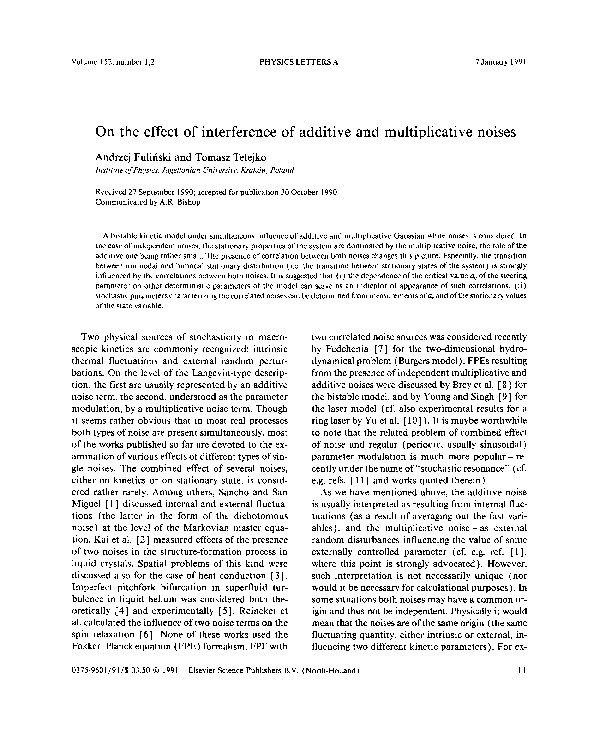 Volume 153, number 1,2
PHYSICS LETTERS A
7 January 1991
On the effect of interference of additive and multiplicative noises
Andrzej Fuliński and Tomasz Telejko
Institute of Physics, Jagellonian University, Kraków, Poland
Received 27 September 1990; accepted for publication 30 October 1990
Communicated by A.R. Bishop
A bistable kinetic model under simultaneous influence of additive and multiplicative Gaussian white noises is considered. In
the case of independent noises, the stationary properties of the system are dominated by the multiplicative noise, the role of the
additive one being rather small. The presence of correlation between both noises changes this picture. Especially, the transition
between unimodal and bimodal stationary distribution (i.e. the transition between stationary states of the system) is strongly
influenced by the correlations between both noises. It is suggested that (i) the dependence of the critical value of the steering
parameter on other deterministic parameters of the model can serve as an indicator of appearance of such correlations, (ii)
stochastic parameters characterizing the correlated noises can be determined from measurements of and of the stationary values
of the state variable.
Two physical sources of stochasticity in macro-
scopic kinetics are commonly recognized: intrinsic
thermal fluctuations and external random pertur-
bations. On the level of the Langevin-type descrip-
tion, the first are usually represented by an additive
noise term, the second, understood as the parameter
modulation, by a multiplicative noise term. Though
it seems rather obvious that in most real processes
both types of noise are present simultaneously, most
of the works published so far are devoted to the ex-
amination of various effects of different types of sin-
gle noises. The combined effect of several noises,
either on kinetics or on stationary state, is consid-
ered rather rarely. Among others, Sancho and San
Miguel [1] discussed internal and external fluctua-
tions (the latter in the form of the dichotomous
noise) at the level of the Markovian master equa-
tion. Kai et al. [2] measured effects of the presence
of two noises in the structure-formation process in
liquid crystals. Spatial problems of this kind were
discussed also for the case of heat conduction [3].
Imperfect pitchfork bifurcation in superfluid tur-
bulence in liquid helium was considered both the-
oretically [4] and experimentally [5]. Reineker et
al. calculated the influence of two noise terms on the
spin relaxation [6]. None of these works used the
Fokker–Planck equation (FPE) formalism. FPE with
two correlated noise sources was considered recently
by Fudchenia [7] for the two-dimensional hydro-
dynamical problem (Burgers model). FPEs resulting
from the presence of independent multiplicative and
additive noises were discussed by Brey et al. [8] for
the bistable model, and by Young and Singh [9] for
the laser model (cf. also experimental results for a
ring laser by Yu et al. [10]). It is maybe worthwhile
to note that the related problem of combined effect
of noise and regular (periodic, usually sinusoidal)
parameter modulation is much more popular – re-
cently under the name of "stochastic resonance" (cf.
e.g. refs. [11] and works quoted therein).
As we have mentioned above, the additive noise
is usually interpreted as resulting from internal fluc-
tuations (as a result of averaging out the fast vari-
ables), and the multiplicative noise – as external
random disturbances influencing the value of some
externally controlled parameter (cf. e.g. ref. [1],
where this point is strongly advocated). However,
such interpretation is not necessarily unique (nor
would it be necessary for calculational purposes). In
some situations both noises may have a common or-
igin and thus not be independent. Physically it would
mean that the noises are of the same origin (the same
fluctuating quantity, either intrinsic or external, in-
fluencing two different kinetic parameters). For ex-
0375-9601/91/$ 03.50 © 1991 – Elsevier Science Publishers B.V. (North-Holland)
11